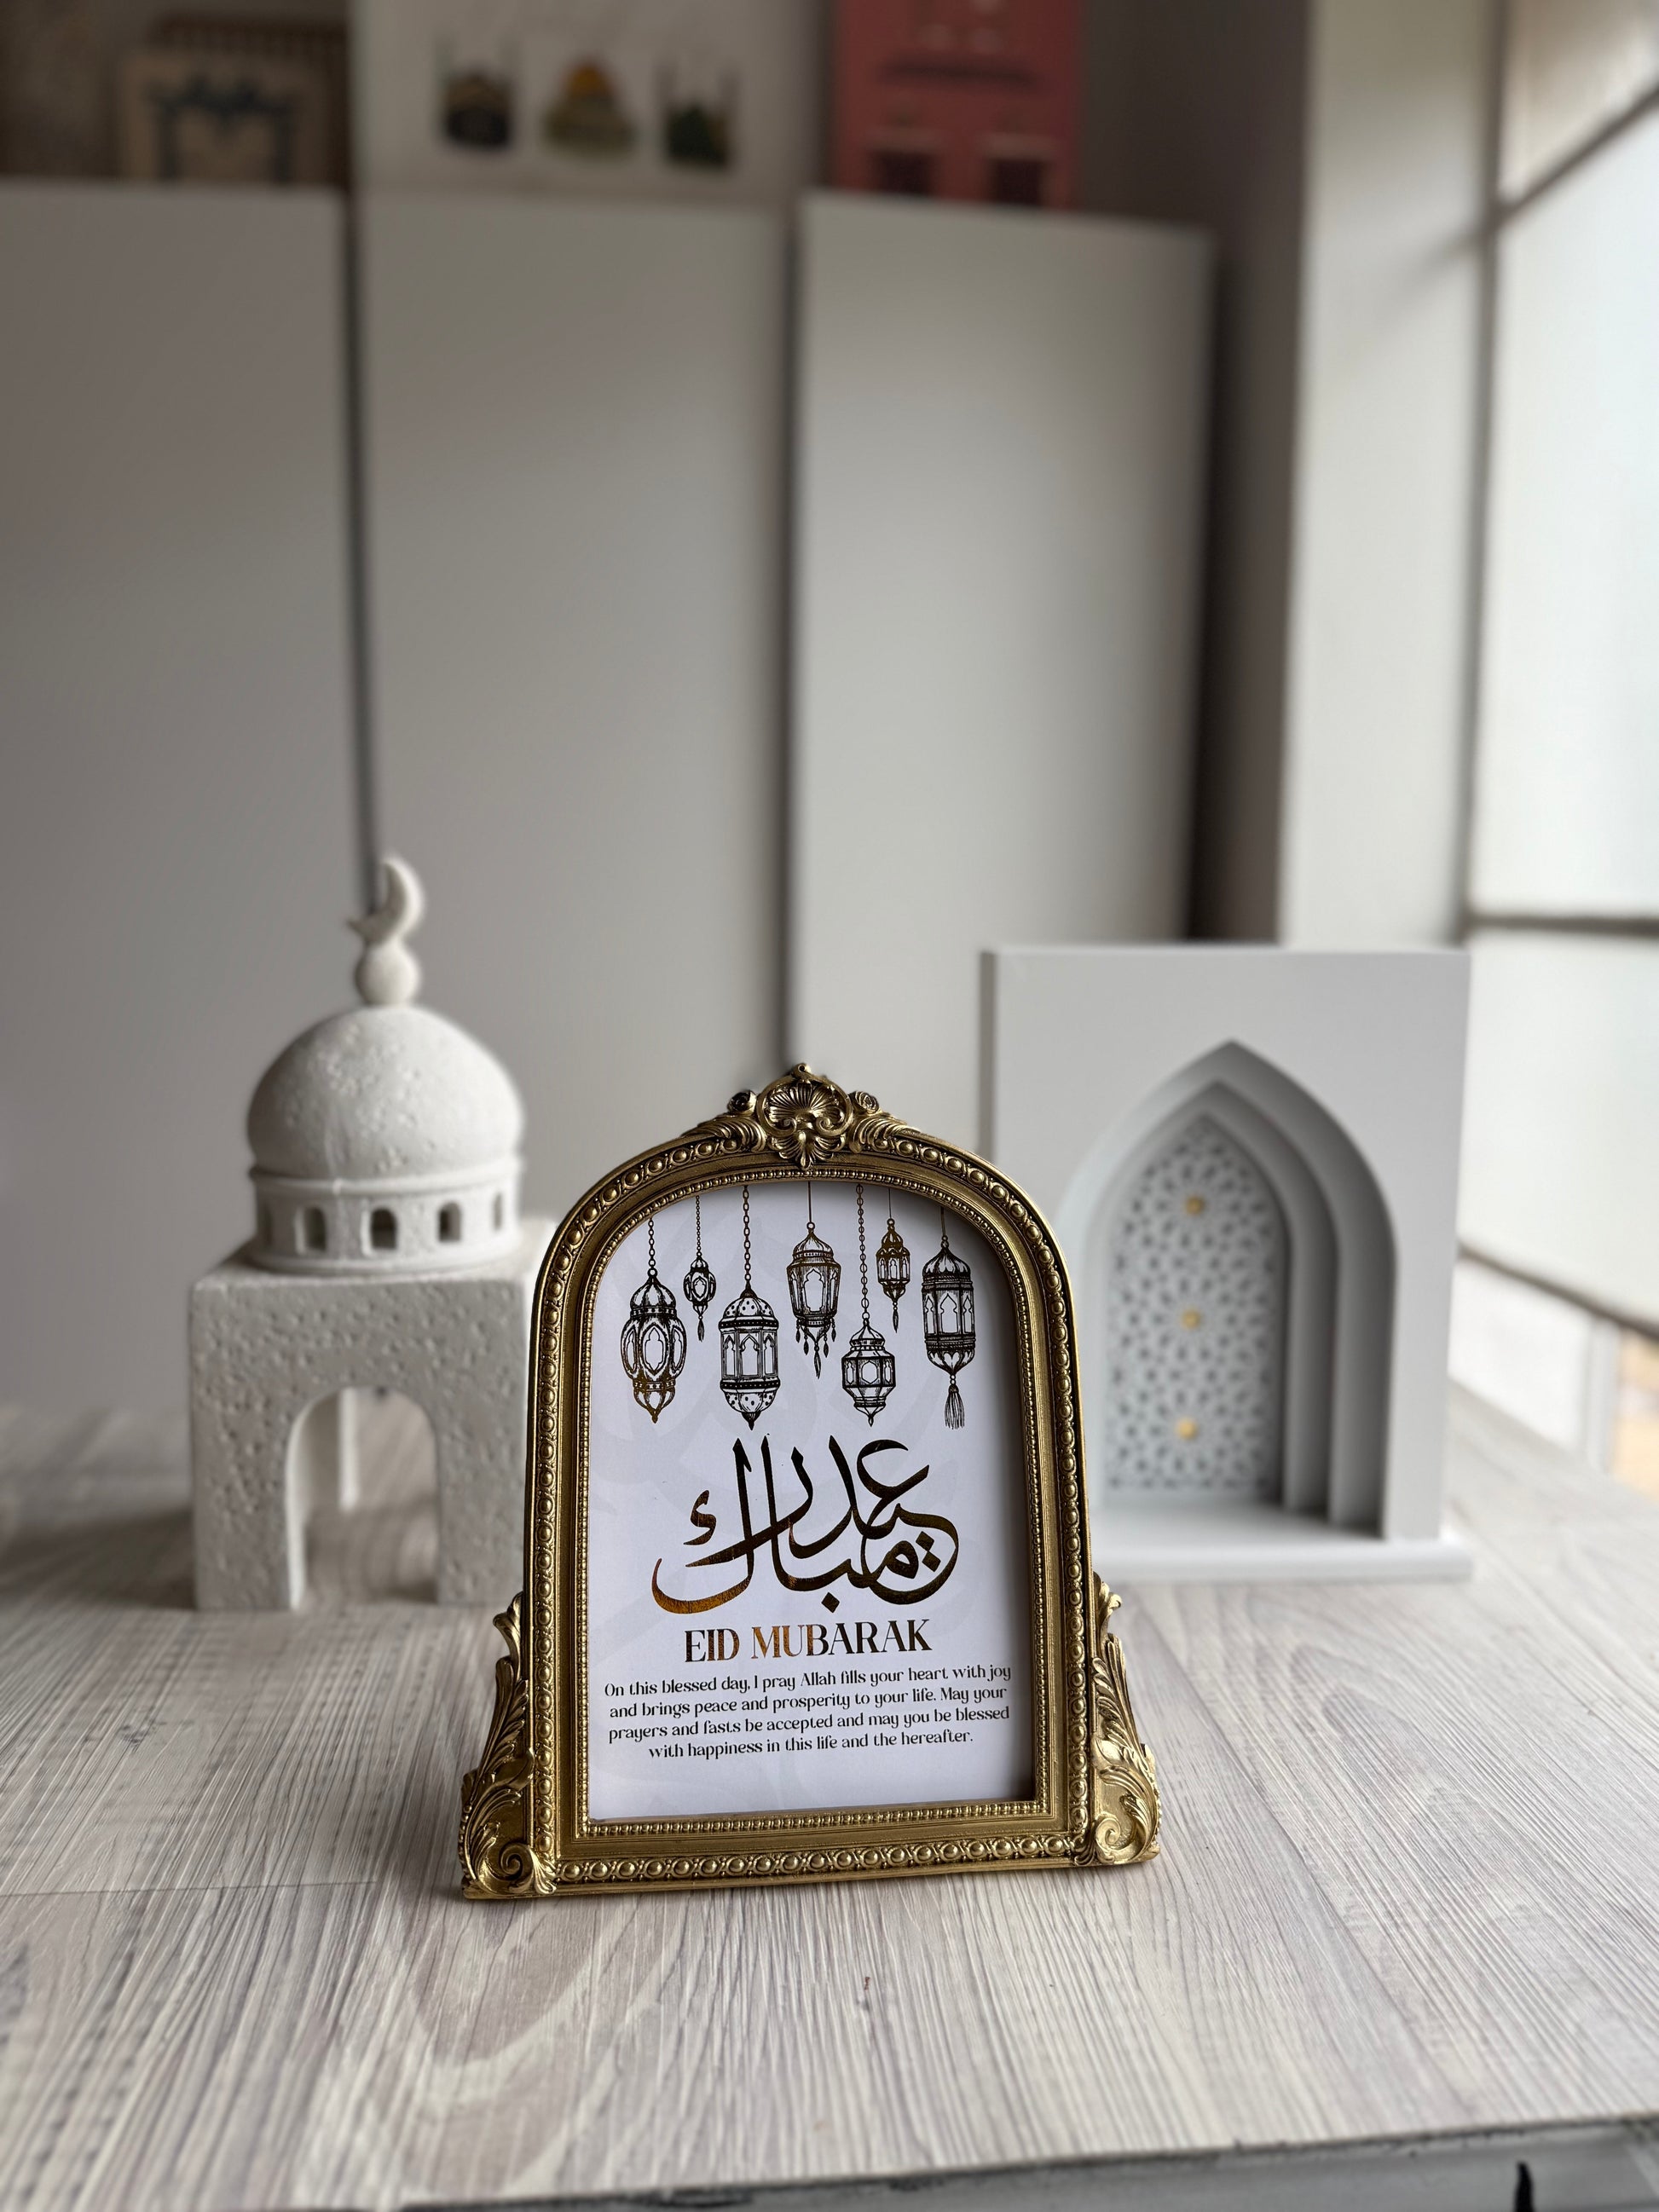 عيد مبارك
EID MUBARAK
On this blessed day, I pray Allah fills your heart with joy
and brings peace and prosperity to your life. May your
prayers and fasts be accepted and may you be blessed
with happiness in this life and the hereafter.